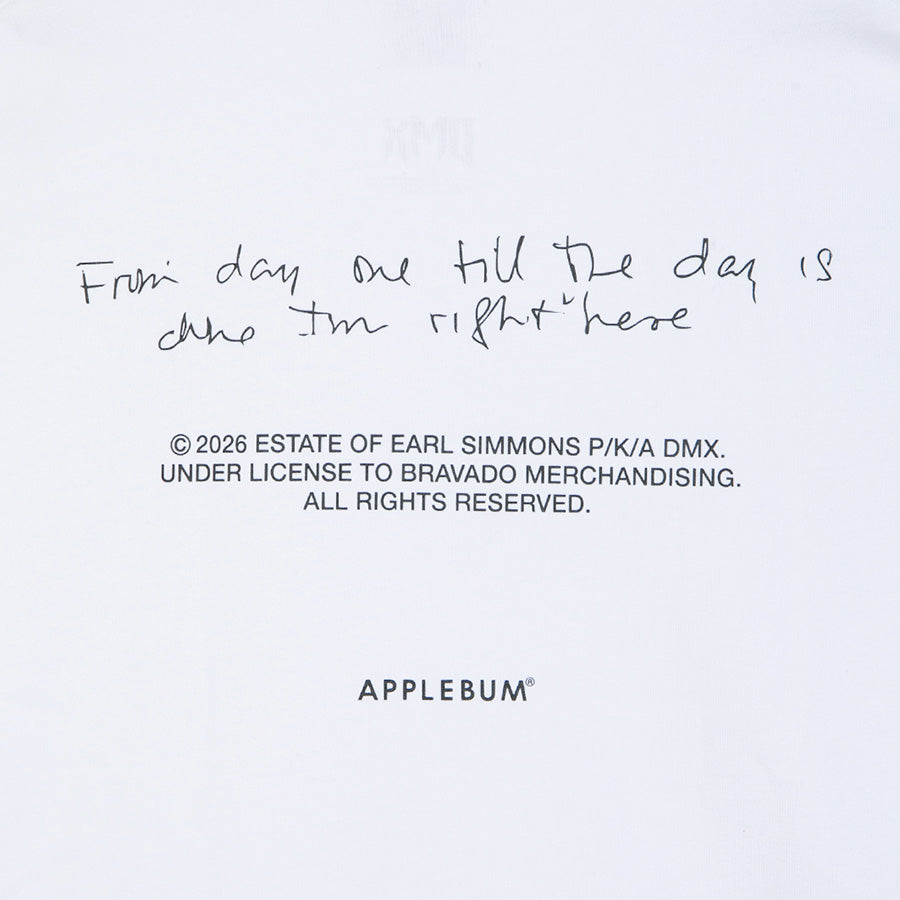 DMX
From day one till the day is
done I'm right here
© 2026 ESTATE OF EARL SIMMONS P/K/A DMX.
UNDER LICENSE TO BRAVADO MERCHANDISING.
ALL RIGHTS RESERVED.
APPLEBUM®